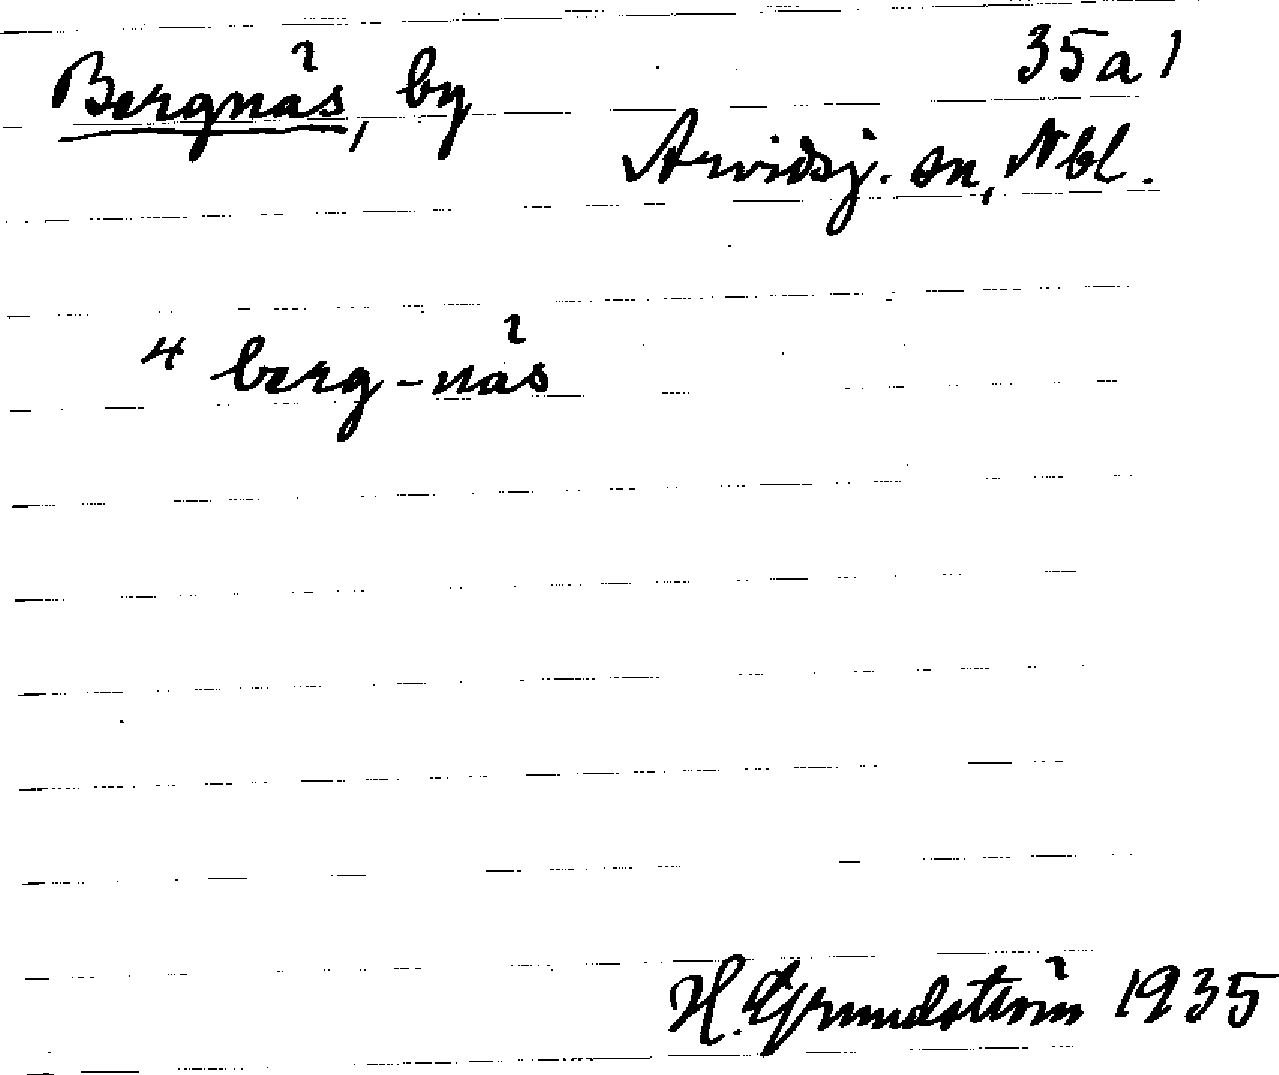 Bergnäs, by 35a1
Arvidsj. sn, Nbl.
4 berg-näs
H. Grundström 1935